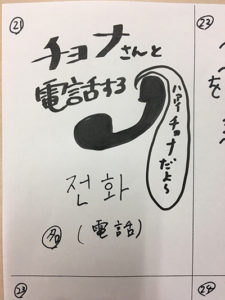 ㉑
チョナさんと
電話する
ハァイ チョナだよ〜
전화
(電話)
㉓
を
㉕